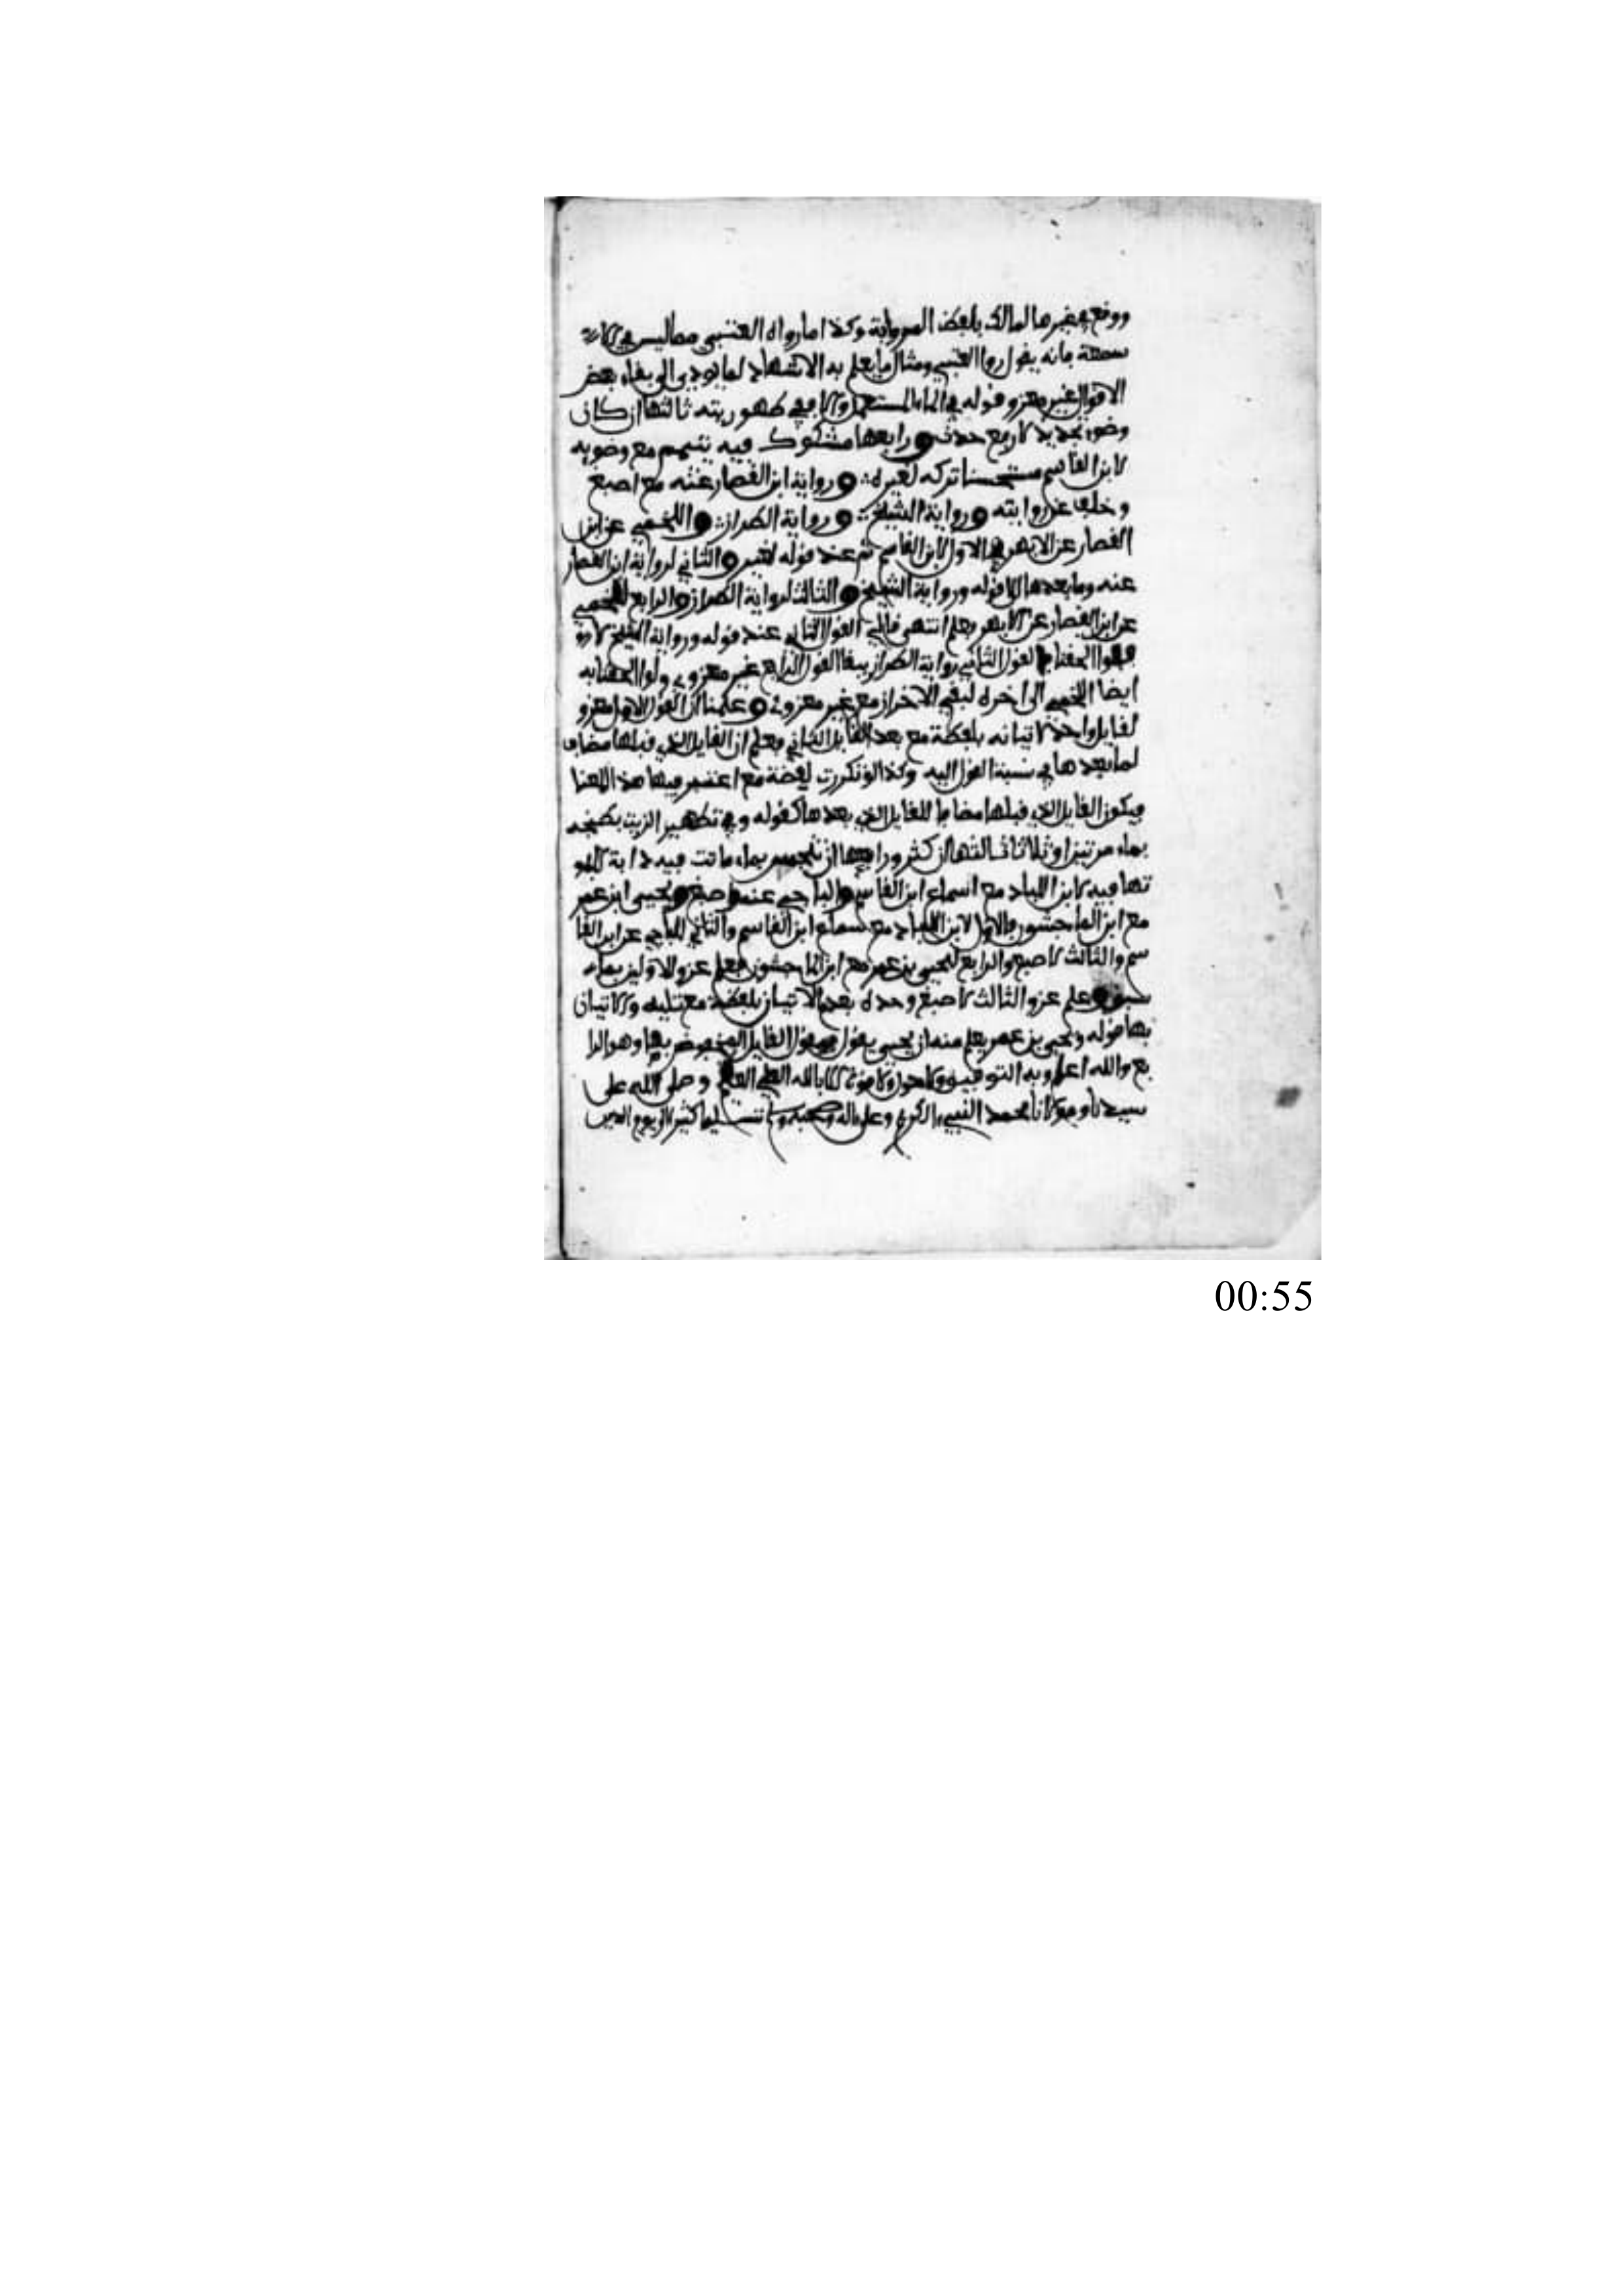 ووقع في غيرها لمالك بلفظ الرواية وكذا ما رواه العتبي مما ليس في
سمعته فانه يقول روا العتبي ومثال ما يعلم به الاستشهاد لما يودي الى بقاء بعض
الاقوال غير معزو قوله في الماء المستعمل وكا في طهوريته ثالثها ان كان
وضوء تجديد لا رفع حدث ورابعها مشكوك فيه يتيمم مع وضويه
لابن القاسم مستحسنا تركه لغيره ورواية ابن القصار عنه مع اصبغ
وخلف عن روايته ورواية الشيخ ورواية الطراز واللخمي عن ابن
القصار عن الابهري الاول لابن القاسم ثم عند قوله لغير والثاني لرواية ابن القصار
عنه وما بعدها الا قوله ورواية الشيخ والثالث لرواية الطراز والرابع للخمي
عن ابن القصار عن الابهر فعلم انتهى قايلي القول الثاني عند قوله ورواية الشيخ لانه
لو الحقنا بالقول الثاني رواية الطراز يبقا القول الرابع غير معزو ولو الحقنا به
ايضا اللخمي الى اخره لبقي الاخر ان مع غير معزو وعلمنا ان القول الاول معزو
لقايل واحد لاتيانه بلفظة مع بعد القايل الثاني فعلم ان القايل الذي قبلها مضاف
لما بعدها في نسبة القول اليه وكذا لو تكررت لفظة مع اعتبر فيها هذا المعنا
فيكون القايل الذي قبلها مضافا للقايل الذي بعدها كقوله وفي تطهير الزيت بطبخه
بماء مرتين او ثلاثا ثالثها ان كثر ورابعها ان تنجس بماء ماتت فيه دابة لا
تها فيه لابن اللباد مع اسماع ابن القاسم والباجي عنه واصبغ ويحيى ابن عمر
مع ابن الماجشون فالاول لابن اللباد مع سماع ابن القاسم والثاني للباجي عن ابن القا
سم والثالث لاصبغ والرابع ليحيى بن عمر مع ابن الماجشون فعلم عزو الاولين بماء
سبق وعلم عزو الثالث لاصبغ وحده بعدم الاتيان بلفظة مع تليه والاتيان
بها قوله ويحيى بن عمر يعلم منه ان يحيى يقول بقول القايل المخفوض بها وهو الرا
بع والله اعلم وبه التوفيق ولا حول ولا قوة الا بالله العلي العظيم وصلى الله على
سيدنا ومولانا محمد النبيء الكريم وعلى اله وصحبه وسلم تسليما كثيرا الى يوم الدين
00:55